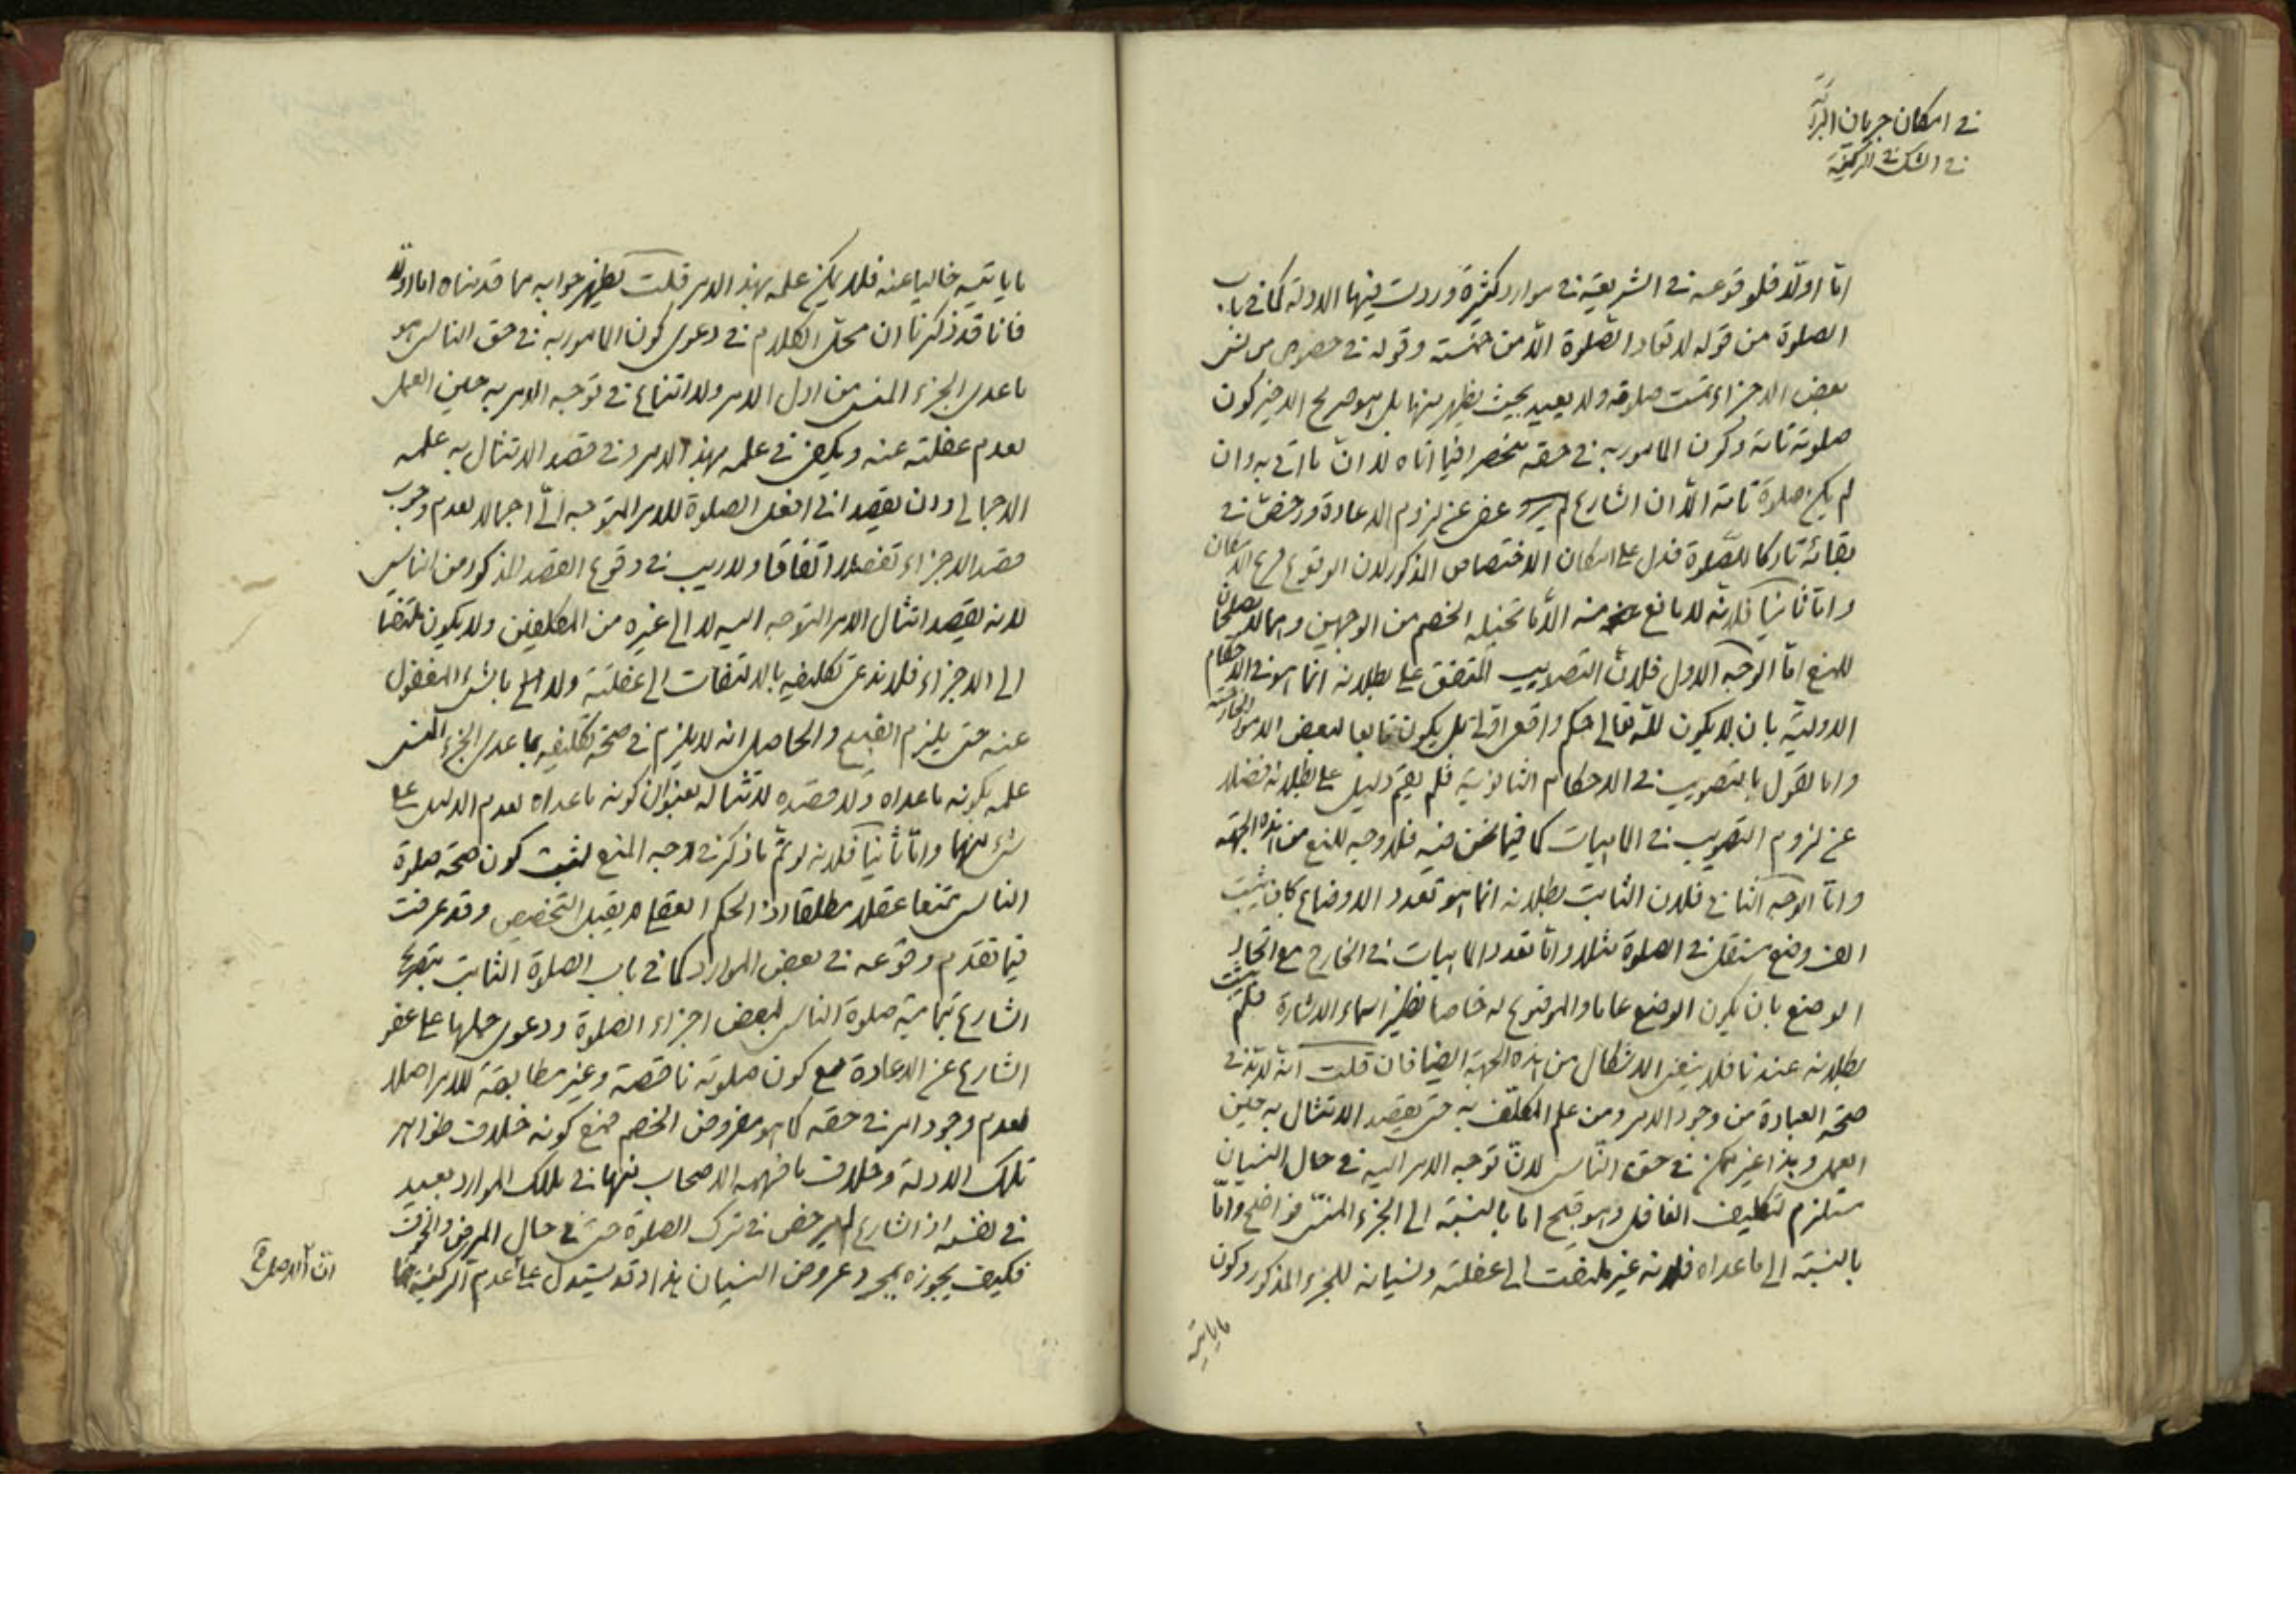 في امكان جريان البرائة
في الشك في الركنية
امّا اولّا فلوقوعه في الشريعة في موارد كثيرة وردت فيها الادلة كما في باب
الصلوة من قوله لا تعاد الصّلوة الّا من خمسة وقوله في خصوص من نسى
بعض الاجزاء تمت صلوته ولا يعيد بحيث يظهر منها بل هو صريح الاخير كون
صلوته تامة وكون المامور به في حقه منحصرا فيما اتاه لا انّ ما اتى به وان
لم يكن صلوة تامة الّا ان الشارع عفى عن لزوم الاعادة ورخص في
بقائه تاركا للصّلوة فدل على امكان الاختصاص المذكور لان الوقوع فرع الامكان
وامّا ثانيا فلانه لا مانع منه الّا ما تخيله الخصم من الوجهين وهما لا يصلحان
للمنع امّا الوجه الاول فلانّ التصويب المتفق على بطلانه انما هو في الاحكام
الاولية بان لا يكون للّه تعالى حكم واقعى اولى بل يكون تابعا لبعض الامور الخارجية
واما القول بالتصويب في الاحكام الثانوية فلم يقم دليل على بطلانه فضلا
عن لزوم التصويب في الماهيات كما فيما نحن فيه فلا وجه للمنع من هذه الجهة
وامّا الوجه الثاني فلان الثابت بطلانه انما هو تعدد الاوضاع كان يثبت
الف وضع مستقل في الصلوة مثلا وامّا تعدد الماهيات في الخارج مع اتحاد
الوضع بان يكون الوضع عاما والموضوع له خاصا نظير اسماء الاشارة فلم يثبت
بطلانه عندنا فلا ينبغى الاشكال من هذه الجهة ايضا فان قلت انه لا بد في
صحة العبادة من وجود الامر ومن علم المكلّف به حتى يقصد الامتثال به حين
العمل وهذا غير ممكن في حق النّاسى لانّ توجه الامر اليه في حال النسيان
مستلزم لتكليف الغافل وهو قبيح اما بالنسبة الى الجزء المنسىّ فواضح وامّا
بالنسبة الى ما عداه فلانه غير ملتفت الى غفلته ونسيانه للجزء المذكور وكون
ما ياتيه
ما ياتيه خاليا عنه فلا يمكن علمه بهذا الامر قلت يظهر جوابه مما قدمناه اما اولا
فانا قد ذكرنا ان محل الكلام في دعوى كون المامور به في حق الناسى هو
ما عدى الجزء المنسى من اول الامر ولا امتناع في توجه الامر به حين العمل
لعدم غفلته عنه ويكفى في علمه بهذا الامر وفي قصد الامتثال به علمه
الاجمالى وان يقصد انى افعل الصلوة للامر المتوجه الىّ اجمالا لعدم وجوب
قصد الاجزاء تفصيلا اتفاقا ولا ريب في وقوع القصد المذكور من الناسى
لانه يقصد امتثال الامر المتوجه اليه لا الى غيره من المكلفين ولا يكون ملتفتا
الى الاجزاء فلا ندعى تكليفه بالالتفات الى غفلته ولا بالشىء المغفول
عنه حتى يلزم القبيح والحاصل انه لا يلزم في صحة تكليفه بما عدى الجزء المنسى
علمه بكونه ما عداه ولا قصده لامتثاله بعنوان كونه ما عداه لعدم الدليل على
شىء منهما وامّا ثانيا فلانه لو تمّ ما ذكر في وجه المنع لثبت كون صحة صلوة
الناسى ممتنعا عقلا مطلقا اذ الحكم العقلى لا يقبل التخصيص وقد عرفت
فيما تقدم وقوعه في بعض الموارد كما في باب الصلوة الثابت بتصريح
الشارع تمامية صلوة الناسى لبعض اجزاء الصلوة ودعوى حملها على عفو
الشارع عن الاعادة مع كون صلوته ناقصة وغير مطابقة للامر اصلا
لعدم وجود امر في حقه كما هو مفروض الخصم فمع كونه خلاف ظواهر
تلك الادلة وخلاف ما فهمه الاصحاب منها في تلك الموارد بعيد
في نفسه اذ الشارع لم يرخص في ترك الصلوة حتى في حال المرض والخوف
فكيف يجوزه بمجرد عروض النسيان هذا وقد يستدل على عدم الركنية
ان الاصل